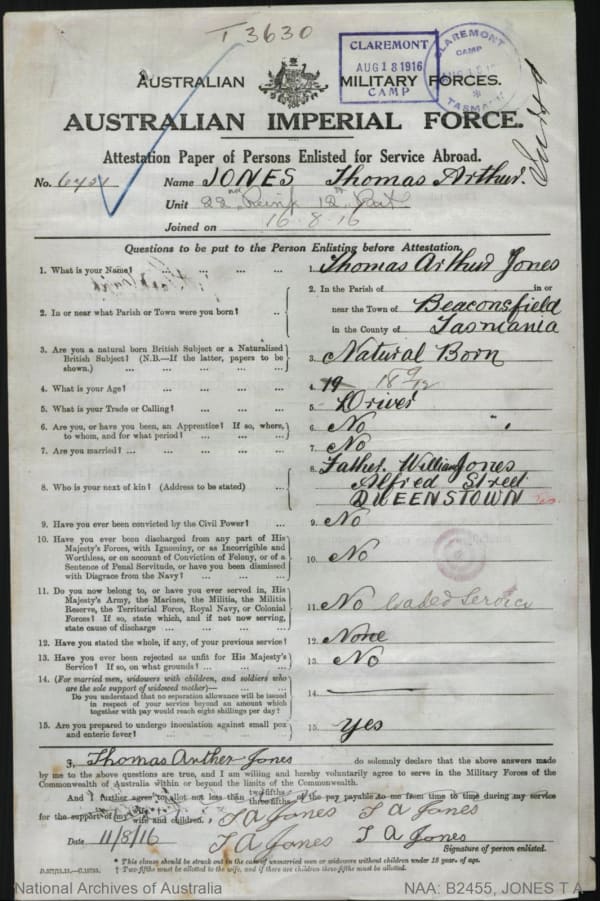 T 3630
CLAREMONT
AUG 18 1916
CAMP
CLAREMONT
CAMP
TASMANIA
AUSTRALIAN MILITARY FORCES.
AUSTRALIAN IMPERIAL FORCE.
Attestation Paper of Persons Enlisted for Service Abroad.
No. Name JONES Thomas Arthur.
Unit 22nd Reinf 12th Bat
Joined on 16-8-16
Questions to be put to the Person Enlisting before Attestation.
1. What is your Name? ... ... ... ... 1. Thomas Arthur Jones
2. In or near what Parish or Town were you born? ... 2. In the Parish of in or
near the Town of Beaconsfield
in the County of Tasmania
3. Are you a natural born British Subject or a Naturalised
British Subject? (N.B.—If the latter, papers to be
shown.) ... ... ... ... 3. Natural Born
4. What is your Age? ... ... ... ... 4. 19 18 9/12
5. What is your Trade or Calling? ... ... ... 5. Driver
6. Are you, or have you been, an Apprentice? If so, where,
to whom, and for what period? ... ... ... 6. No
7. Are you married? ... ... ... ... 7. No
8. Who is your next of kin? (Address to be stated) ... 8. Father. William Jones
Alfred Street
QUEENSTOWN Tas
9. Have you ever been convicted by the Civil Power? ... 9. No
10. Have you ever been discharged from any part of His
Majesty's Forces, with Ignominy, or as Incorrigible and
Worthless, or on account of Conviction of Felony, or of a
Sentence of Penal Servitude, or have you been dismissed
with Disgrace from the Navy? ... ... ... 10. No
11. Do you now belong to, or have you ever served in, His
Majesty's Army, the Marines, the Militia, the Militia
Reserve, the Territorial Force, Royal Navy, or Colonial
Forces? If so, state which, and if not now serving,
state cause of discharge ... ... ... 11. No Cadet Service
12. Have you stated the whole, if any, of your previous service? 12. None
13. Have you ever been rejected as unfit for His Majesty's
Service? If so, on what grounds? ... ... ... 13. No
14. (For married men, widowers with children, and soldiers who
are the sole support of widowed mother)—
Do you understand that no separation allowance will be issued
in respect of your service beyond an amount which
together with pay would reach eight shillings per day? 14.
15. Are you prepared to undergo inoculation against small pox
and enteric fever? ... ... ... ... 15. Yes
I, Thomas Arther Jones do solemnly declare that the above answers made
by me to the above questions are true, and I am willing and hereby voluntarily agree to serve in the Military Forces of the
Commonwealth of Australia within or beyond the limits of the Commonwealth.
And I further agree to allot not less than two-fifths three-fifths of the pay payable to me from time to time during my service
for the support of my wife and children. T A Jones T A Jones
Date 11/8/16 T A Jones T A Jones
Signature of person enlisted.
* This clause should be struck out in the case of unmarried men or widowers without children under 18 years of age.
† Two-fifths must be allotted to the wife, and if there are children three-fifths must be allotted.
National Archives of Australia NAA: B2455, JONES T A